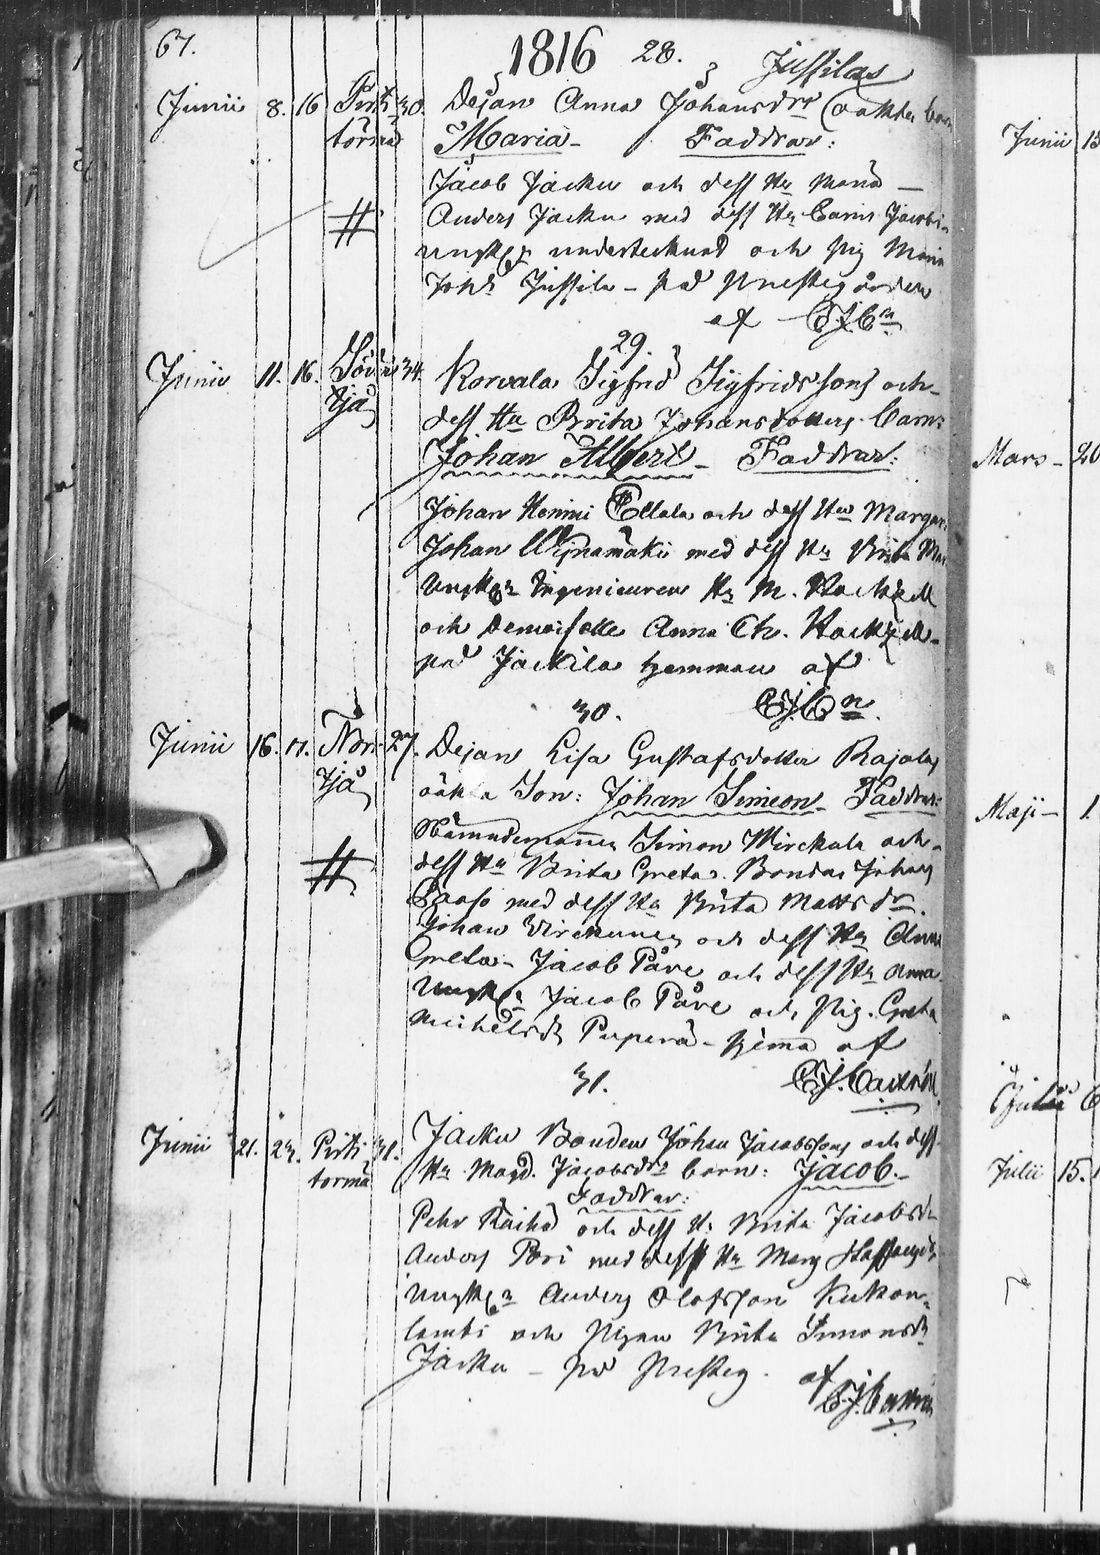 67.
1816 28.
Jussilas
Junii 8. 16 Pirttörmä 30. Dejan Anna Johansdrs oäkta barn
Maria - Faddrar:
Jacob Jacku och dess Hu Maria -
Anders Jacku med dess Hu Carin Jacobs
undertecknad och Pig Maria
Johd Jussila - på Prestegården
af CJCn
29.
Junii 11. 16. Söder Ijå 34. Korvala Sigfrid Sigfridssons och
dess Hu Brita Johansdotters Barn:
Johan Albert - Faddrar:
Johan Henric Ollala och dess Hu Margar
Johan med dess Hu Brita Mar
Ungk Ingenieuren Hr M. Hackzell
och Demoiselle Anna Ch. Hackzell -
på Jackila hemman af
CJCn.
30.
Junii 16. 17. Norr Ijå 27. Dejan Lisa Gustafsdotter Rajalas
oäkta Son: Johan Simeon - Faddrar:
Nämndemannen Simon Wirckula och
dess Hu Brita Greta. Bondas Johan
Paaso med dess Hu Brita Mattsdr.
Johan Wirckunen och dess Hu Anna
Greta - Jacob Påre och dess Hu Anna
Jacob Påre och Pig. Greta
Michelsdr Puperä - hemma af
CJ. Castrén
31.
Junii 21. 23. Pirttörmä 31. Jacku Bonden Johan Jacobssons och dess
Hu Magd. Jacobsdrs barn: Jacob. -
Faddrar:
Pehr Kaiha och dess H. Brita Jacobsdr
Anders Pori med dess Hu Marg Staffansdr
Anders Olofsson Kukon-
lambi och Pigan Brita Simonsdr
Jacku - på Presteg. af
C.J. Castrén
Junii 13
Mars - 20
Maji - 1.
Julii 6
Julii 15.